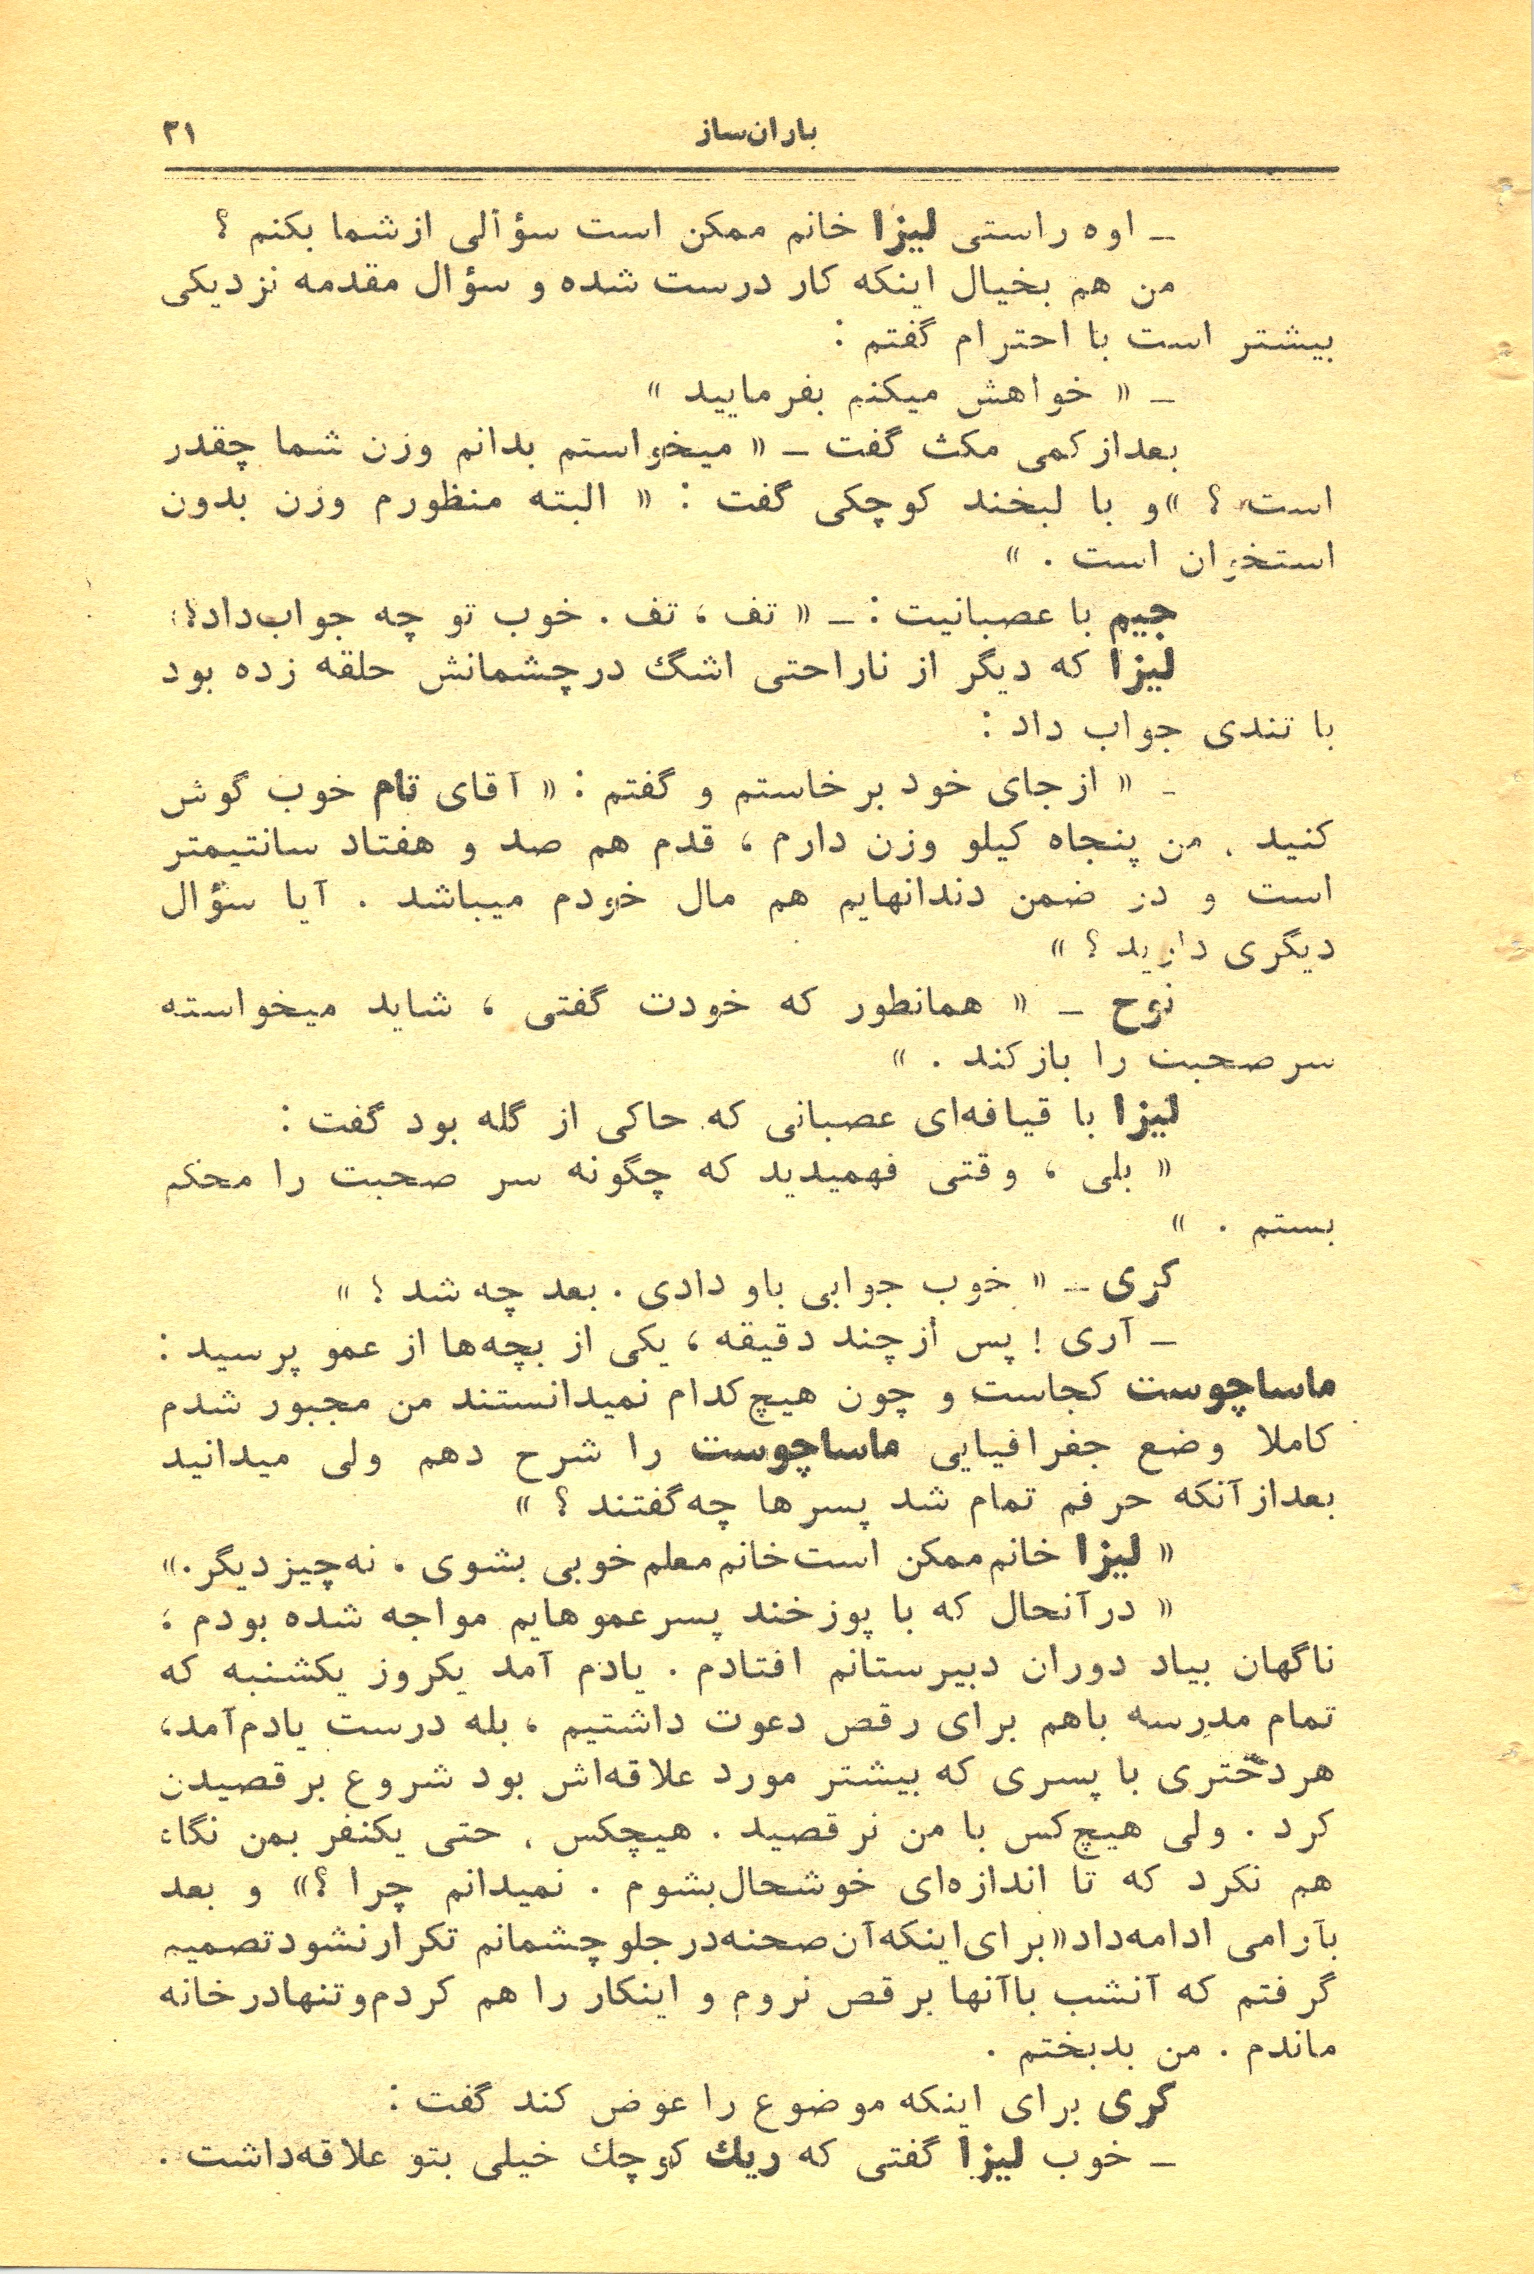 باران‌ساز ۳۱
ـ اوه راستی لیزا خانم ممکن است سؤالی از شما بکنم ؟
من هم بخیال اینکه کار درست شده و سؤال مقدمه نزدیکی
بیشتر است با احترام گفتم :
ـ « خواهش میکنم بفرمایید »
بعداز کمی مکث گفت ـ « میخواستم بدانم وزن شما چقدر
است ؟ » و با لبخند کوچکی گفت : « البته منظورم وزن بدون
استخوان است . »
جیم با عصبانیت : ـ « تف ، تف . خوب تو چه جواب‌داد؟
لیزا که دیگر از ناراحتی اشگ درچشمانش حلقه زده بود
با تندی جواب داد :
ـ « ازجای خود برخاستم و گفتم : « آقای تام خوب گوش
کنید . من پنجاه کیلو وزن دارم ، قدم هم صد و هفتاد سانتیمتر
است و در ضمن دندانهایم هم مال خودم میباشد . آیا سؤال
دیگری دارید ؟ »
نوح ـ « همانطور که خودت گفتی ، شاید میخواسته
سرصحبت را بازکند . »
لیزا با قیافه‌ای عصبانی که حاکی از گله بود گفت :
« بلی ، وقتی فهمیدید که چگونه سر صحبت را محکم
بستم . »
کری ـ « خوب جوابی باو دادی . بعد چه شد ؟ »
ـ آری ! پس ازچند دقیقه ، یکی از بچه‌ها از عمو پرسید :
ماساچوست کجاست و چون هیچ‌کدام نمیدانستند من مجبور شدم
کاملا وضع جغرافیایی ماساچوست را شرح دهم ولی میدانید
بعداز آنکه حرفم تمام شد پسرها چه‌گفتند ؟ »
« لیزا خانم ممکن است‌خانم معلم خوبی بشوی . نه‌چیزدیگر . »
« درآنحال که با پوزخند پسرعموهایم مواجه شده بودم ؛
ناگهان بیاد دوران دبیرستانم افتادم . یادم آمد یکروز یکشنبه که
تمام مدرسه باهم برای رقص دعوت داشتیم ، بله درست یادم‌آمد،
هردختری با پسری که بیشتر مورد علاقه‌اش بود شروع برقصیدن
کرد . ولی هیچ‌کس با من نرقصید . هیچکس . حتی یکنفر بمن نگاه
هم نکرد که تا اندازه‌ای خوشحال‌بشوم . نمیدانم چرا ؟» و بعد
بآرامی ادامه‌داد «برای‌اینکه‌آن‌صحنه‌درجلوچشمانم تکرارنشودتصمیم
گرفتم که آنشب باآنها برقص نروم و اینکار را هم کردم‌وتنهادرخانه
ماندم . من بدبختم .
کری برای اینکه موضوع را عوض کند گفت :
ـ خوب لیزا گفتی که ریك کوچك خیلی بتو علاقه‌داشت .